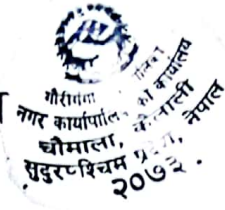 गौरीगंगा
नगर कार्यपालिका को कार्यालय
चौमाला, कैलाली
सुदुरपश्चिम प्रदेश, नेपाल
२०७३